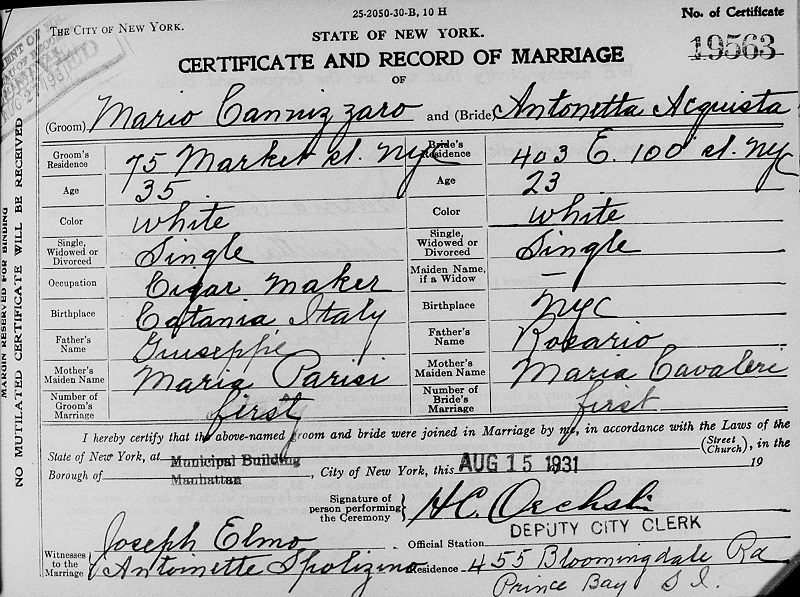 25-2050-30-B, 10 H
No. of Certificate
THE CITY OF NEW YORK.
STATE OF NEW YORK.
19563
CERTIFICATE AND RECORD OF MARRIAGE
OF
(Groom) Mario Cannizzaro and (Bride) Antonetta Acquista
Groom's Residence 75 Market st. NyC Bride's Residence 403 E. 100 st. NyC
Age 35 Age 23
Color White Color White
Single, Widowed or Divorced Single Single, Widowed or Divorced Single
Occupation Cigar Maker Maiden Name, if a Widow —
Birthplace Catania Italy Birthplace NyC
Father's Name Giuseppe Father's Name Rosario
Mother's Maiden Name Maria Parisi Mother's Maiden Name Maria Cavaleri
Number of Groom's Marriage first Number of Bride's Marriage first
I hereby certify that the above-named groom and bride were joined in Marriage by me, in accordance with the Laws of the
State of New York, at Municipal Building (Street Church), in the
Borough of Manhattan, City of New York, this AUG 15 1931 19
Signature of person performing the Ceremony H.C.
DEPUTY CITY CLERK
Witnesses to the Marriage Joseph Elmo Official Station
Antoinette Spolizino Residence 455 Bloomingdale Rd
Prince Bay S I.
MARGIN RESERVED FOR BINDING
NO MUTILATED CERTIFICATE WILL BE RECEIVED